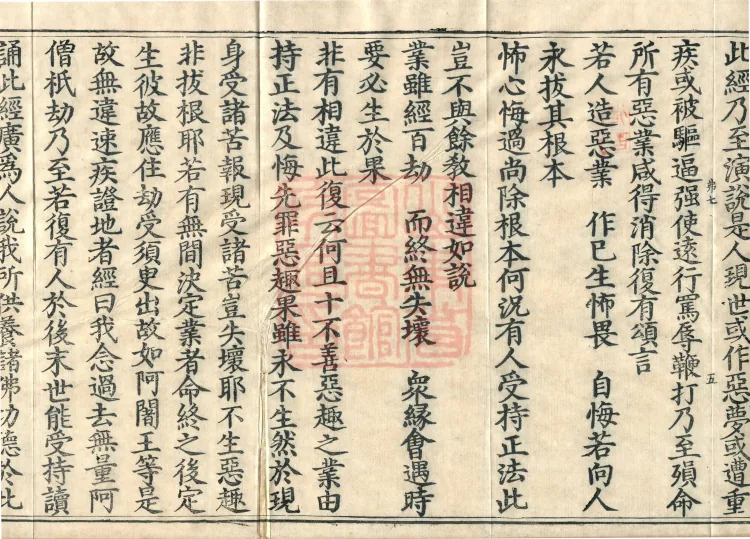 此經乃至演說是人現世或作惡夢或遭重
疾或被驅逼强使遠行罵辱鞭打乃至殞命
所有惡業咸得消除復有頌言
若人造惡業　作已生怖畏　自悔若向人
永拔其根本
怖心悔過尚除根本何況有人受持正法此
豈不與餘教相違如說
業雖經百劫　而終無失壞　衆緣會遇時
要必生於果
非有相違此復云何且十不善惡趣之業由
持正法及悔先罪惡趣果雖永不生然於現
身受諸苦報現受諸苦豈失壞耶不生惡趣
非拔根耶若有無間決定業者命終之後定
生彼故應住劫受須臾出故如阿闍王等是
故無違速疾證地者經曰我念過去無量阿
僧祇劫乃至若復有人於後末世能受持讀
誦此經廣爲人說我所供養諸佛功德於此
弟七
五